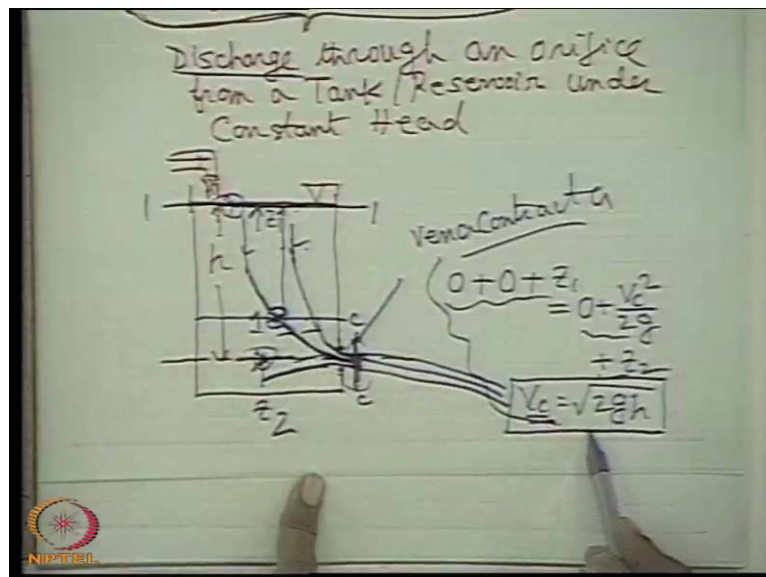 Discharge through an orifice
from a Tank/Reservoir under
Constant Head
1 1
h
vena contracta
0+0+z₁
= 0+ Vc²/2g
+ z₂
c
c
z₂
Vc = √2gh
NPTEL